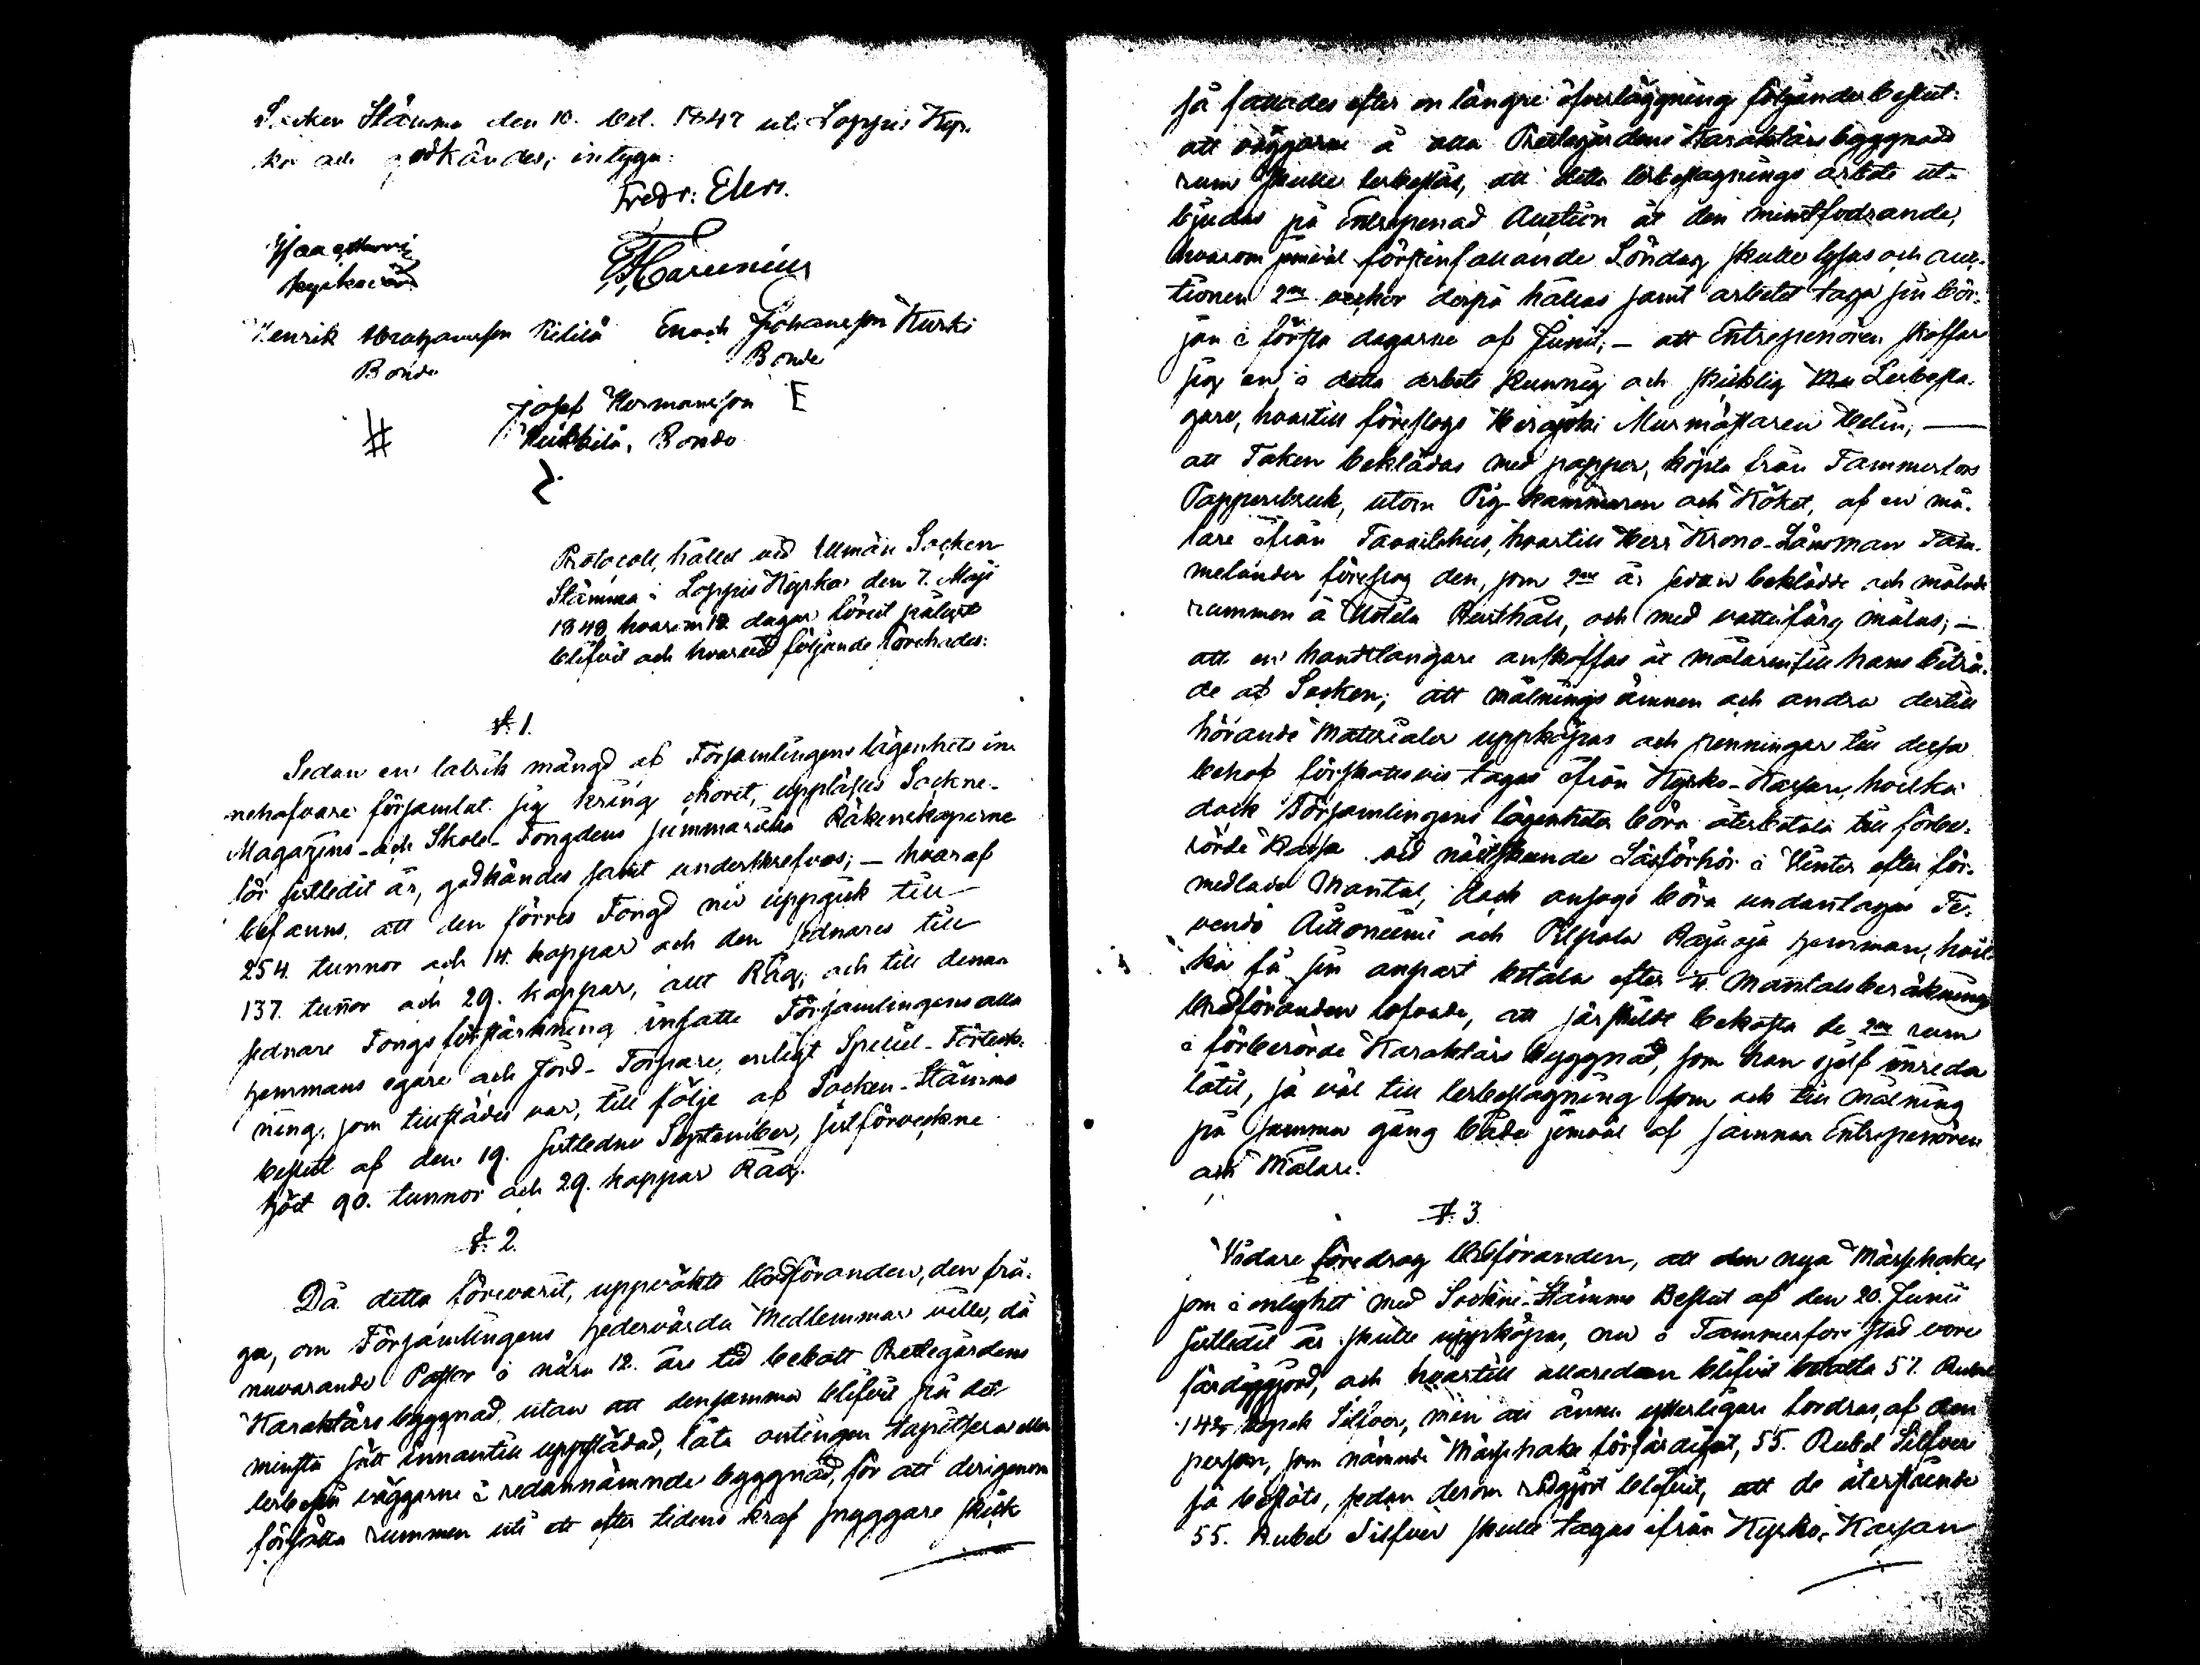 Socken Stämma den 10. Oct. 1847 uti Loppis Kyr-
ka och godkändes, intyga:
Fredr: Elers.
Isaac
Kyrkovärd
Henrik Abrahamsson Enoch Johansson Kurki
Bonde Bonde
Josef Hermansson
Heikkilä, Bonde
Protocoll, hållet vid Allmän Socken
Stämma i Loppis Kyrka den 7. Maji
1848, hvarom dagar förut pålyst
blifvit och hvarvid följande förehades:
§. 1.
Sedan en talrik mängd af Församlingens lägenhets in-
nehafvare församlat sig kring choret, upplästes Sockne-
Magazins- och Skole-Fongdens summariska Räkenskaperne
för sistledit år, godkändes samt underskrefvos; – hvaraf
befanns, att den förres Fongd nu uppgick till
254. tunnor och 14. kappar och den sednares till
137. tunnor och 29. kappar, allt Råg, och till denna
sednare Fongs förstärkning insatte Församlingens alla
hemmans egare och Jord-Torpare, enligt Speciel-Förteck-
ning, som tillstädes var, till följe af Socken-Stämmo
beslut af den 19. sistledne September,
hört 90. tunnor och 29. kappar Råg.
§. 2.
Då detta förevarit, uppväkte Ordföranden, den frå-
ga, om Församlingens hedervärda Medlemmar ville, då
nuvarande Pastor i nära 12. års tid bebott Prestegårdens
Karaktärs byggnad, utan att densamma blifvit på det
minsta sätt innantill uppstädad, låta antingen tapitsera eller
lerbeslå väggarne i redannämnde byggnad, för att derigenom
försätta rummen uti ett efter tidens kraf snyggare skick
så fattades efter en längre öfverläggning följande beslut:
att väggarne å alla Prestegårdens Karaktärs byggnads
rum skulle lerbeslås, att detta lerbeslagnings arbete ut-
bjudes på Entreprenad Auction åt den minstfodrande,
hvarom jemväl förstinfallande Söndag skulle lysas och auc-
tionen 2ne veckor derpå hållas samt arbetet taga sin bör-
jan i första dagarne af Junii; – att Entreprenören skaffar
sig en i detta arbete kunnig och skicklig Lerbesla-
gare, hvartill föreslogs Murmästaren Hedin; –
att Taken beklädas med papper, köpta från Tammerfors
Pappersbruk, utom Pig-kammaren och Köket, af en må-
lare ifrån Tavastehus, hvartill Herr Krono-Länsman Tam-
melander föreslog den, som 2ne år sedan beklädde och målade
rummen å Boställe, och med vattufärg målas; –
att en handtlangare anskaffas åt målaren till hans biträ-
de af Socken; att målnings ämnen och andra dertill
hörande Materialier uppköpas och penningar till dessa
behof förskottsvis tagas ifrån Kyrko-Kassan, hvilka
dock Församlingens lägenheter böra återbetala till förbe-
rörde Kassa vid nästkunde Läsförhör i Vinter efter för-
medlade Mantal, dock ansågs böra undantagas Te-
vendö och Pilpala hemman, hvil-
ka få sin anpart betala efter Mantalsberäkning.
Ordföranden lofvade, att särskildt bekosta de 2ne rum
i förberörde Karaktärs byggnad, som han sjelf inreda
låtit, så väl till lerbeslagning som ock till målning
på samma gång både jemväl af samma Entreprenören
och Målare.
§. 3.
Vidare föredrog Ordföranden, att den nya Mässhaken
som i enlighet med Sockne-Stämmo Beslut af den 20. Junii
sistledit år skulle uppköpas, nu i Tammerfors stad vore
färdiggjord, och hvartill allaredan blifvit betalta 57. Rubel
14 kopek Silfver, men att ännu ytterligare fordras, af den
person, som nämnde Mässhake förfärdigat, 55. Rubel Silfver
så beslöts, sedan derom rådgjort blifvit, att de återstående
55. Rubel Silfver skulle tagas ifrån Kyrko-Kassan